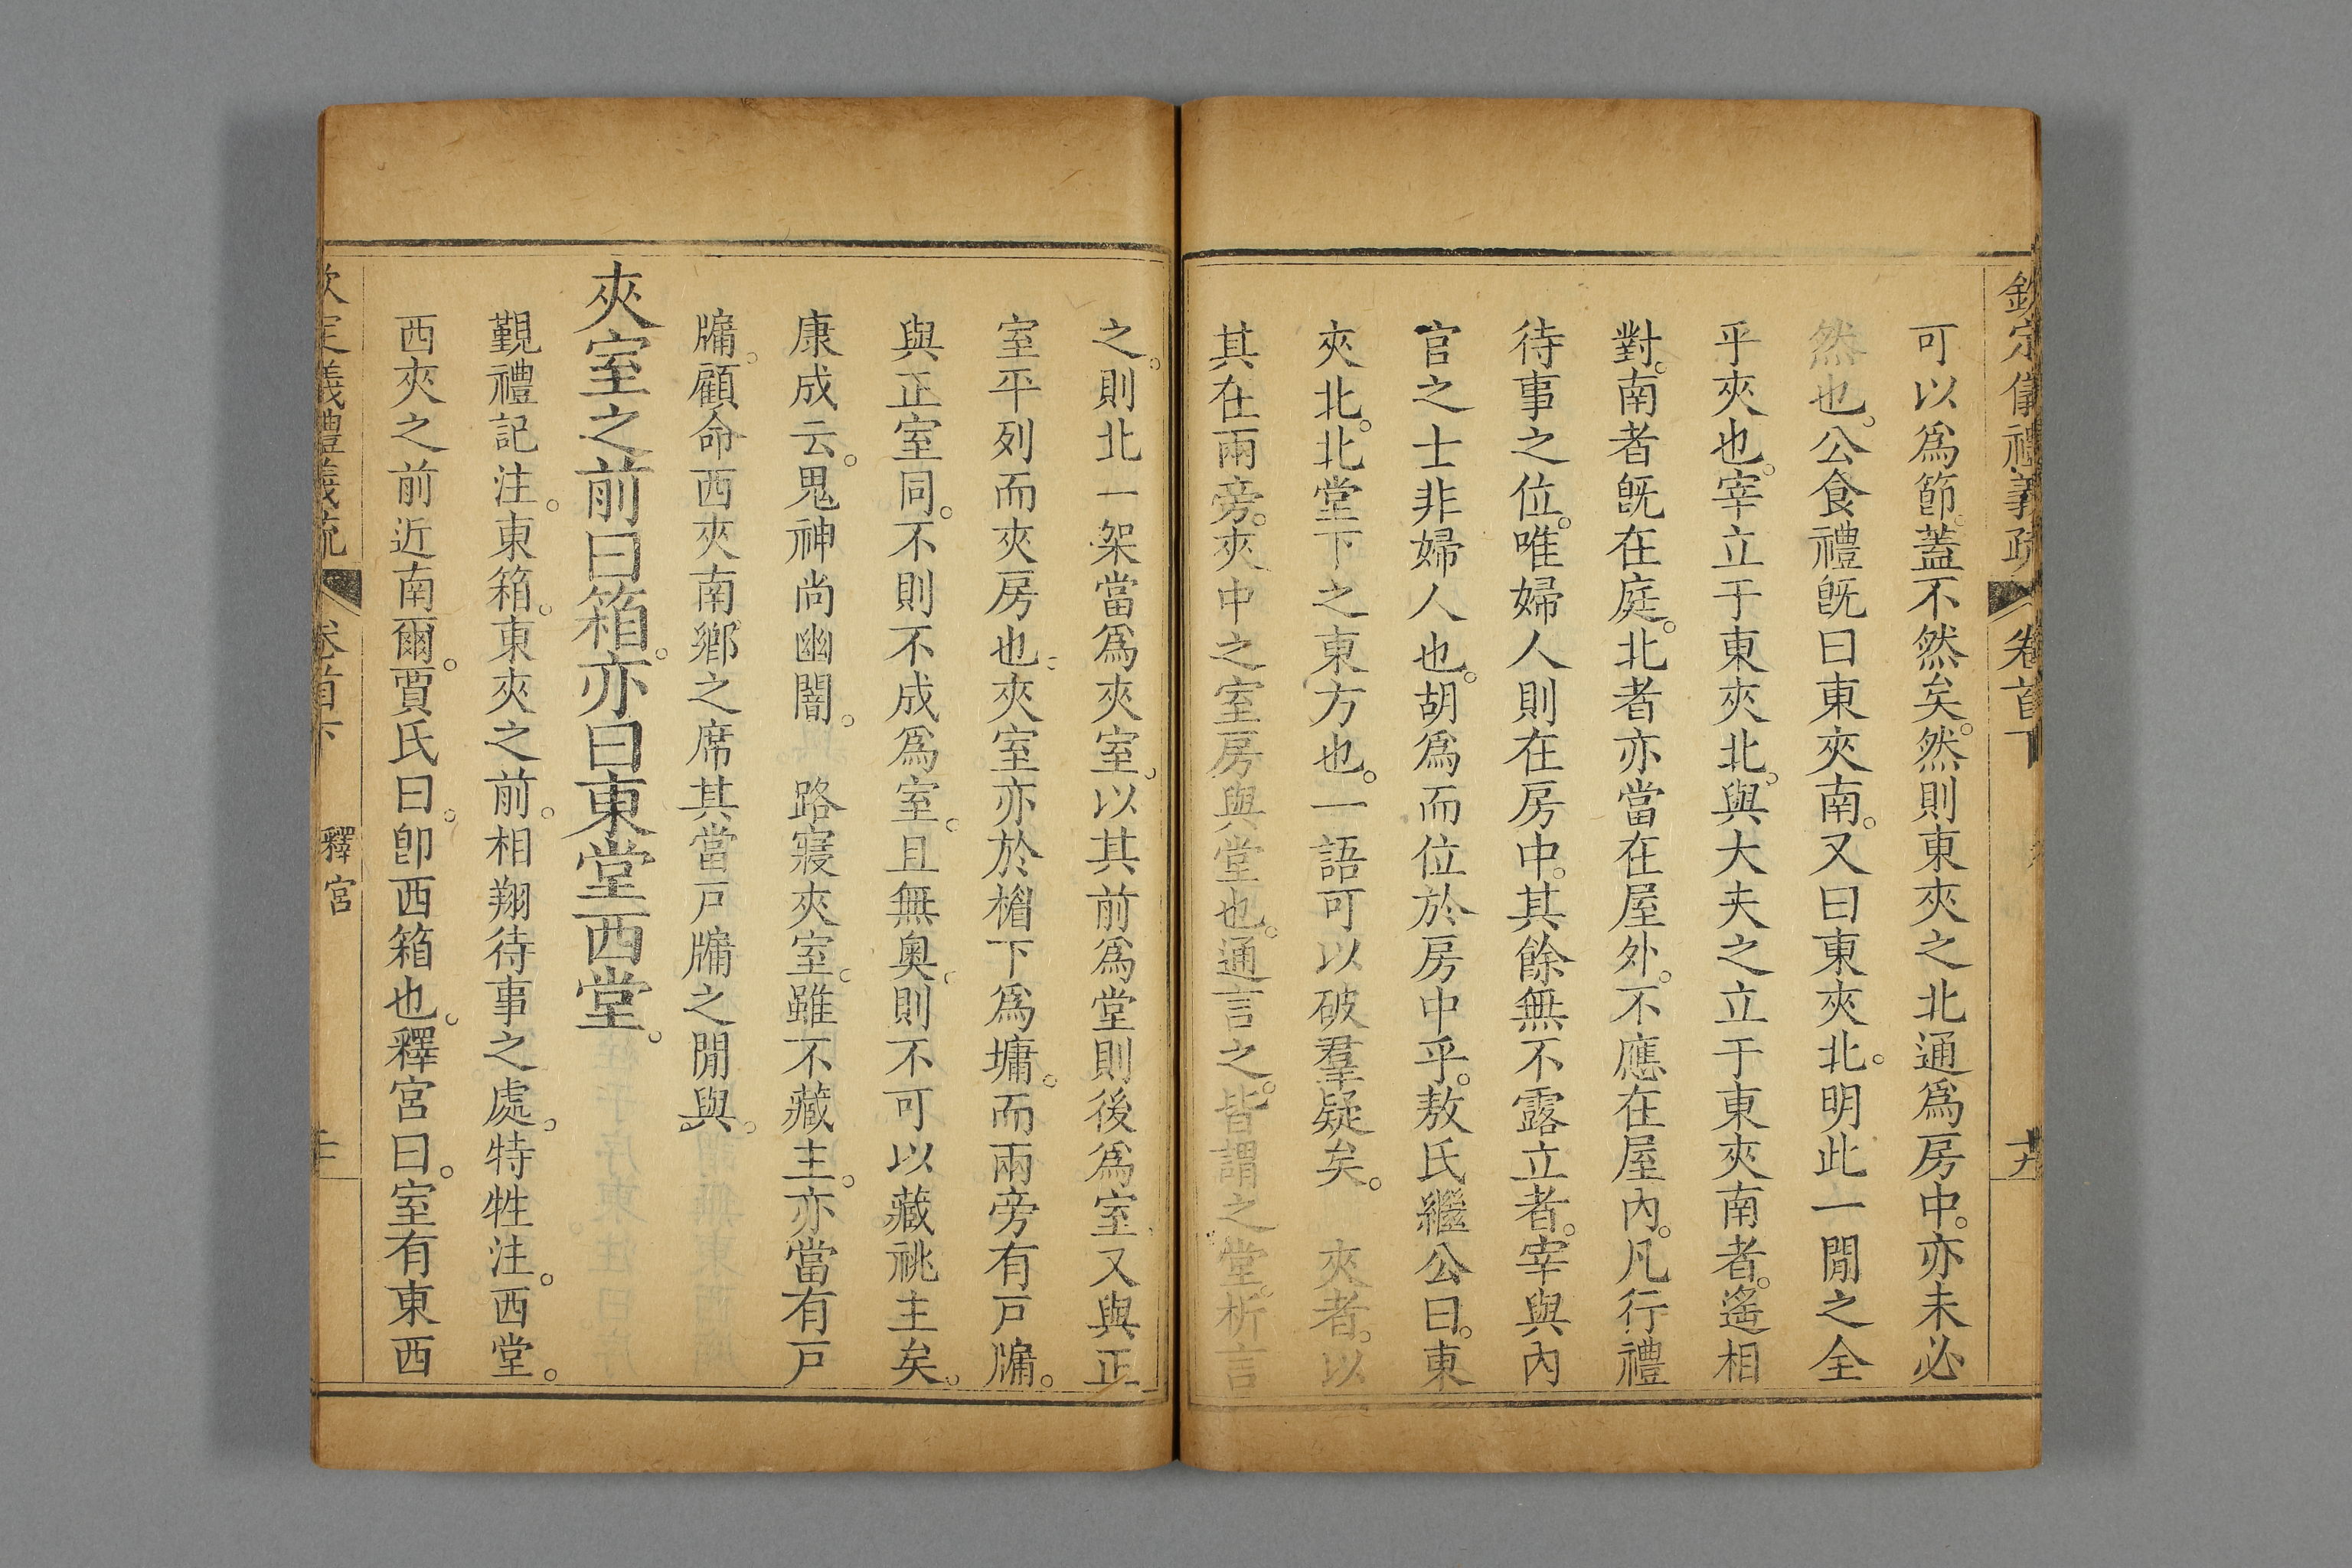 欽定儀禮義疏 卷首下 十九
可以爲節。蓋不然矣。然則東夾之北通爲房中。亦未必
然也。公食禮旣曰東夾南。又曰東夾北。明此一閒之全
乎夾也。宰立于東夾北。與大夫之立于東夾南者。遙相
對。南者旣在庭。北者亦當在屋外。不應在屋內。凡行禮
待事之位。唯婦人則在房中。其餘無不露立者。宰與內
官之士非婦人也。胡爲而位於房中乎。敖氏繼公曰。東
夾北。北堂下之東方也。一語可以破羣疑矣。 夾者。以
其在兩旁。夾中之室房與堂也。通言之。皆謂之堂。析言
之。則北一架當爲夾室。以其前爲堂則後爲室。又與正
室平列而夾房也。夾室亦於楣下爲墉。而兩旁有戸牖。
與正室同。不則不成爲室。且無奧。則不可以藏祧主矣。
康成云。鬼神尚幽闇。 路寢夾室。雖不藏主。亦當有戸
牖。顧命西夾南鄉之席其當戸牖之閒與。
夾室之前曰箱。亦曰東堂西堂。
覲禮記注。東箱。東夾之前。相翔待事之處。特牲注。西堂。
西夾之前近南爾。賈氏曰。卽西箱也。釋宮曰。室有東西
欽定義禮義疏 卷首下 釋宮